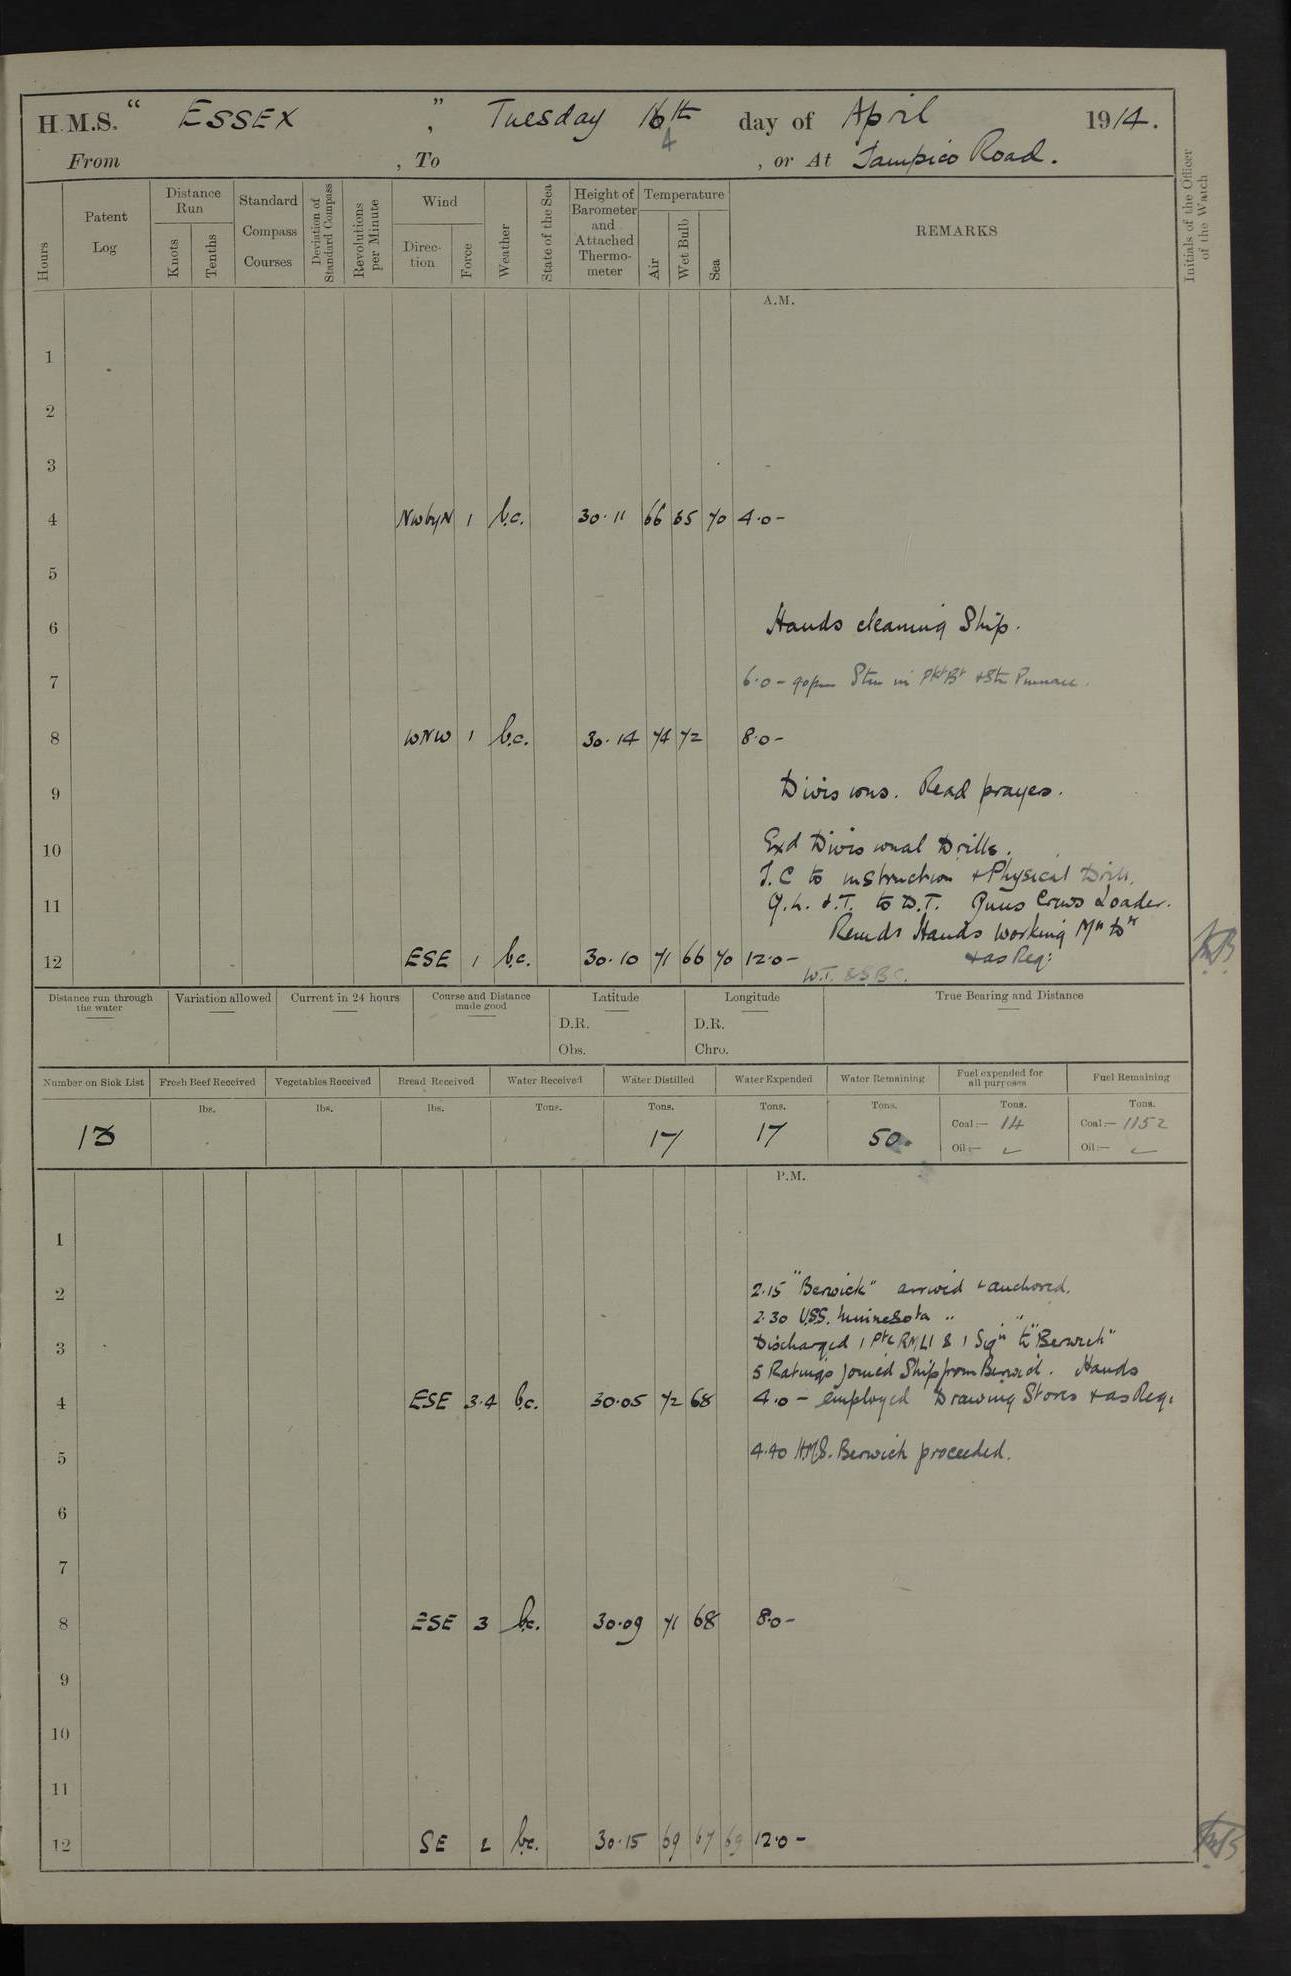 H.M.S. " ESSEX ", Tuesday 16th day of April 1914.
4
From , To , or At Tampico Road.
Hours
Patent Log
Distance Run
Knots
Tenths
Standard Compass Courses
Deviation of Standard Compass
Revolutions per Minute
Wind
Direction
Force
Weather
State of the Sea
Height of Barometer and Attached Thermometer
Temperature
Air
Wet Bulb
Sea
REMARKS
Initials of the Officer of the Watch
A.M.
1
2
3
4 NWbyN 1 b.c. 30.11 66 65 70 4.0-
5
6 Hands cleaning Ship.
7 6.0 -
8 WNW 1 b.c. 30.14 74 72 8.0-
9 Divisions. Read prayers.
10 Exd Divisional Drills.
T.C to instruction & Physical Drill.
11 Q.L. & T. to D.T. Guns Crews Loader.
Remdr Hands working
12 ESE 1 b.c. 30.10 71 66 70 12.0- & as Req:
W.T. & S.B.C.
Distance run through the water
Variation allowed
Current in 24 hours
Course and Distance made good
Latitude
Longitude
True Bearing and Distance
D.R. D.R.
Obs. Chro.
Number on Sick List
Fresh Beef Received
Vegetables Received
Bread Received
Water Received
Water Distilled
Water Expended
Water Remaining
Fuel expended for all purposes
Fuel Remaining
lbs. lbs. lbs. Tons. Tons. Tons. Tons. Tons. Tons.
13 17 17 50. Coal:— 14 Coal:— 1152
Oil:— Oil:—
P.M.
1
2 2.15 "Berwick" arrived & anchored.
2.30 U.S.S. Minnesota " "
3 Discharged 1 Pte RMLI & 1 Sign to "Berwick"
5 Ratings joined Ship from Berwick. Hands
4 ESE 3.4 b.c. 30.05 72 68 4.0 - employed Drawing Stores & as Req:
5 4.40 H.M.S. Berwick proceeded.
6
7
8 ESE 3 b.c. 30.09 71 68 8.0-
9
10
11
12 SE 2 b.c. 30.15 69 67 69 12.0-